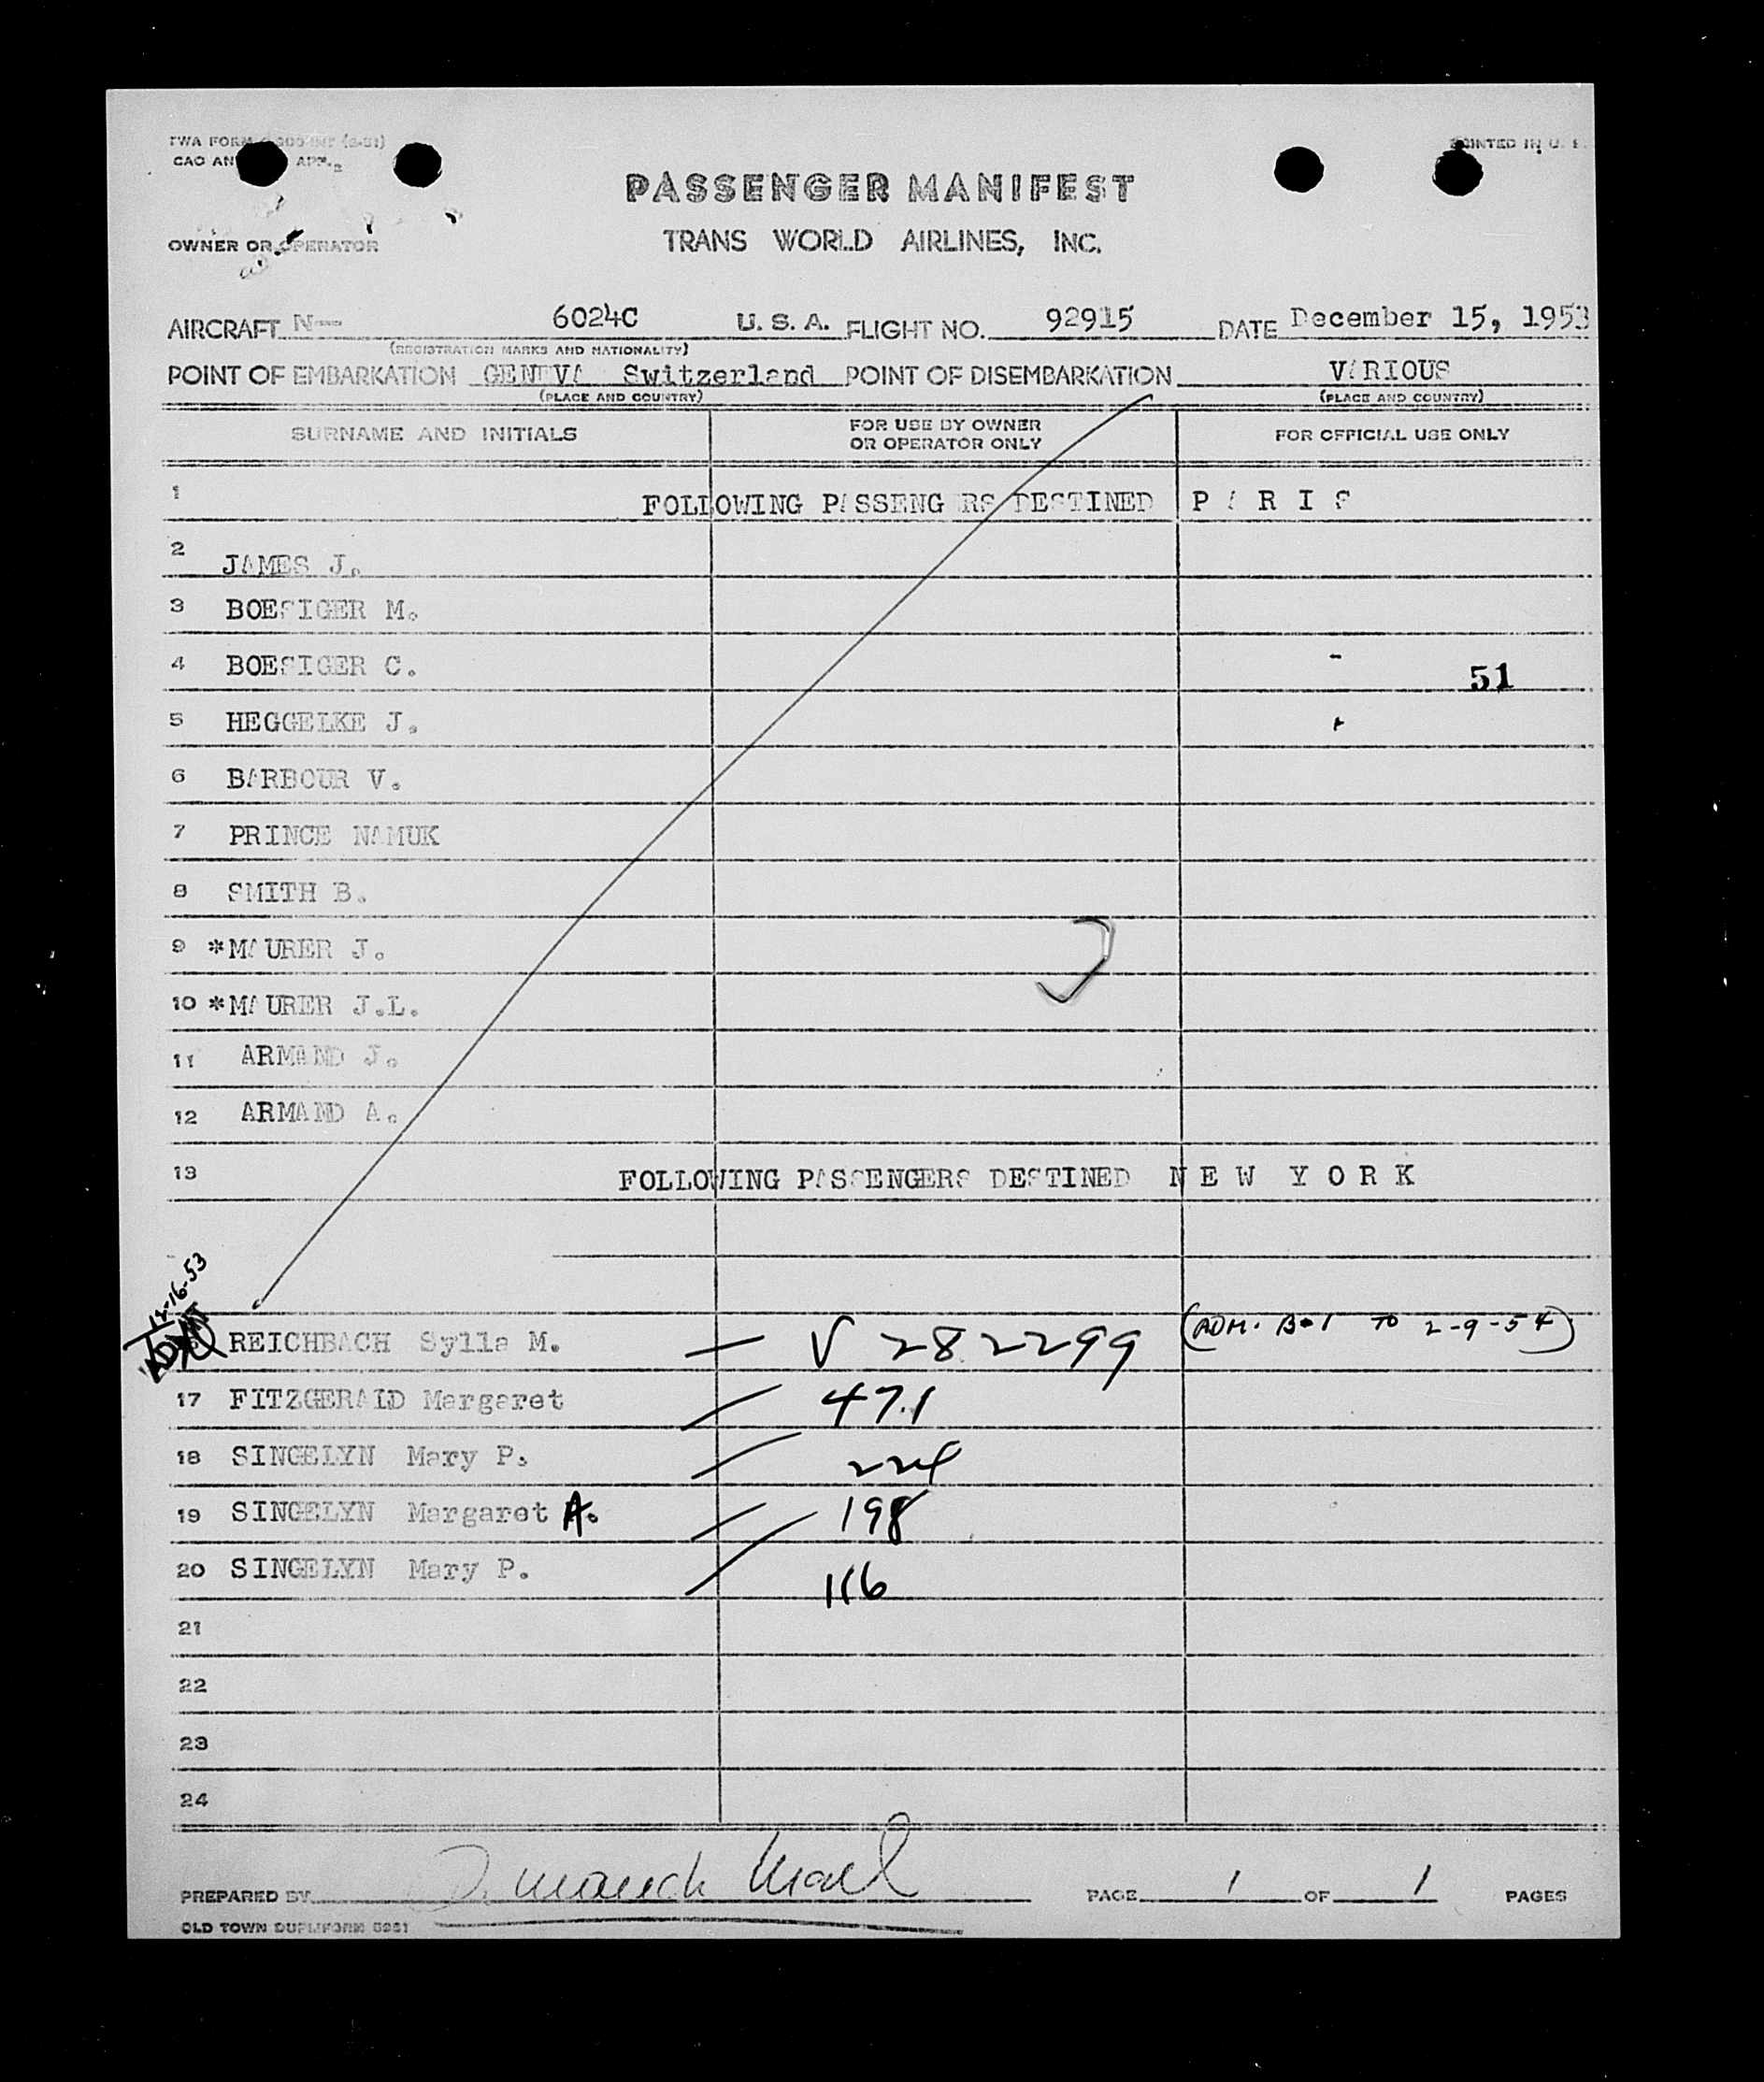 TWA FORM
CAO AN APP.
PRINTED IN U. S.
PASSENGER MANIFEST
OWNER OR OPERATOR
TRANS WORLD AIRLINES, INC.
AIRCRAFT N— 6024C U. S. A. FLIGHT NO. 92915 DATE December 15, 1953
(REGISTRATION MARKS AND NATIONALITY)
POINT OF EMBARKATION GENEVA Switzerland POINT OF DISEMBARKATION VARIOUS
(PLACE AND COUNTRY) (PLACE AND COUNTRY)
SURNAME AND INITIALS FOR USE BY OWNER OR OPERATOR ONLY FOR OFFICIAL USE ONLY
1 FOLLOWING PASSENGERS DESTINED P A R I S
2 JAMES J.
3 BOESIGER M.
4 BOESIGER C. 51
5 HEGGELKE J.
6 BARBOUR V.
7 PRINCE NAMUK
8 SMITH B.
9 *MAURER J.
10 *MAURER J.L.
11 ARMAND J.
12 ARMAND A.
13 FOLLOWING PASSENGERS DESTINED N E W Y O R K
12-16-53
REICHBACH Sylla M. — V 282299 (ADM. B-1 TO 2-9-54)
17 FITZGERALD Margaret 471
18 SINGELYN Mary P. 224
19 SINGELYN Margaret A. 198
20 SINGELYN Mary P. 116
21
22
23
24
PREPARED BY PAGE 1 OF 1 PAGES
OLD TOWN DUPLIFORM